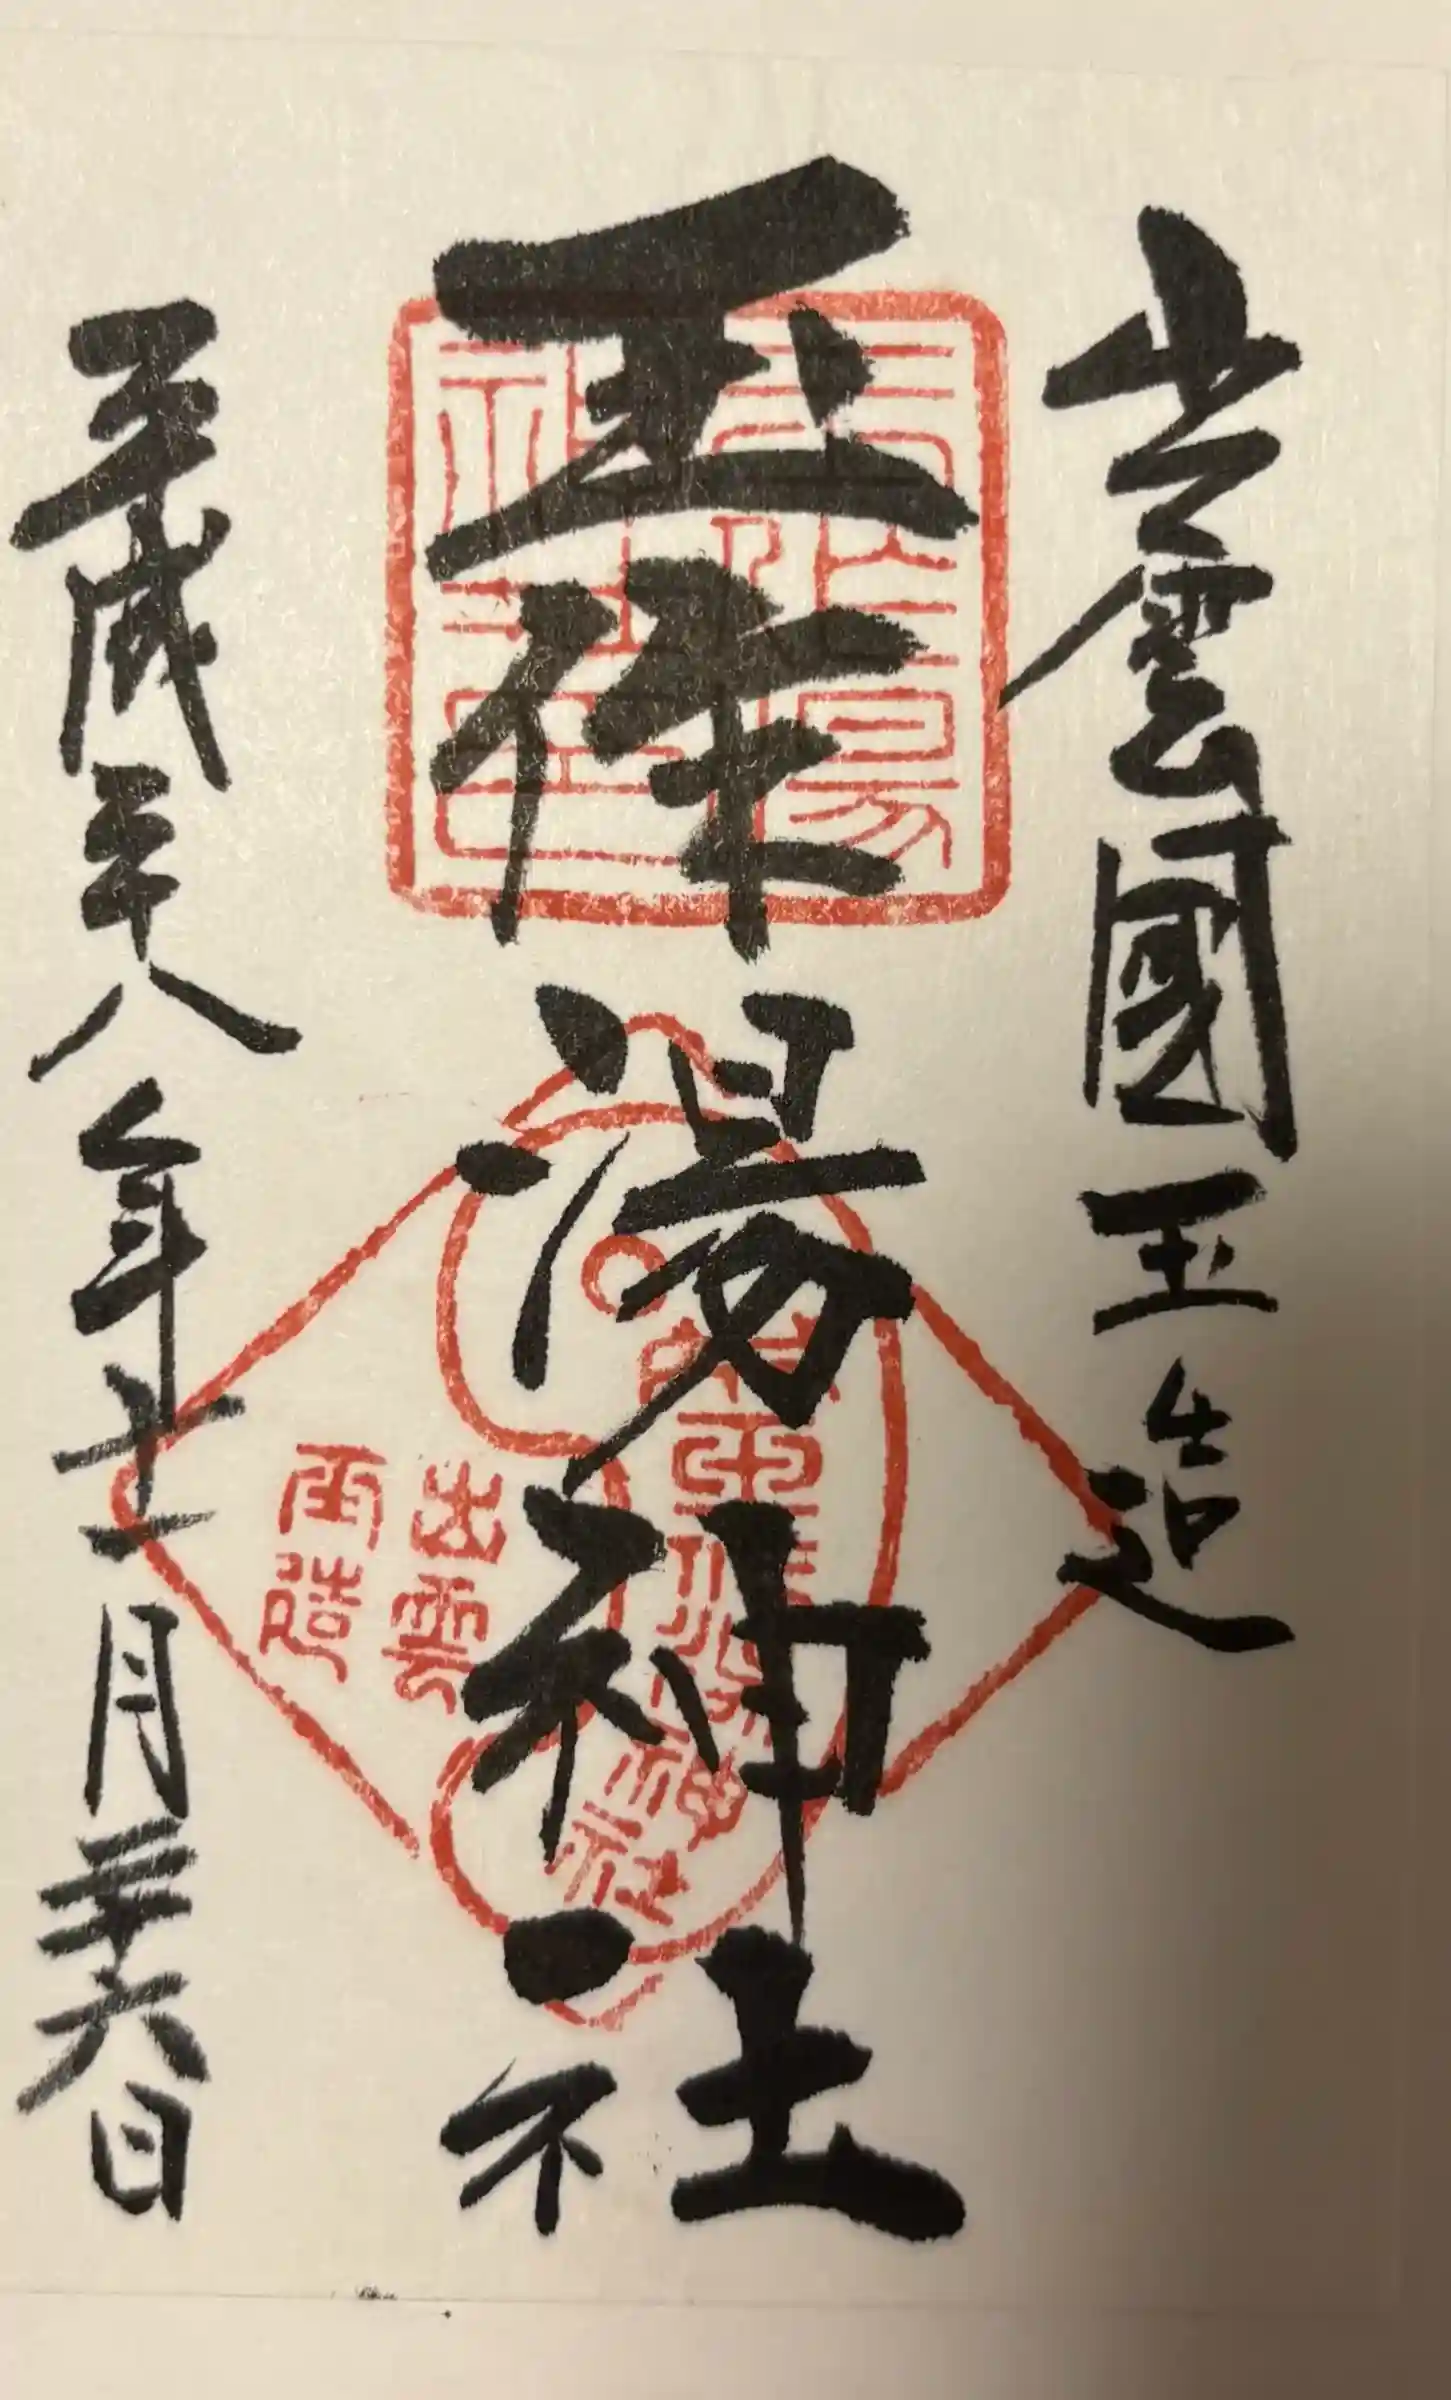 出雲國玉造
玉作湯神社
平成二十八年十一月二十六日
玉作湯
神社印
玉作湯神社
出雲
玉造